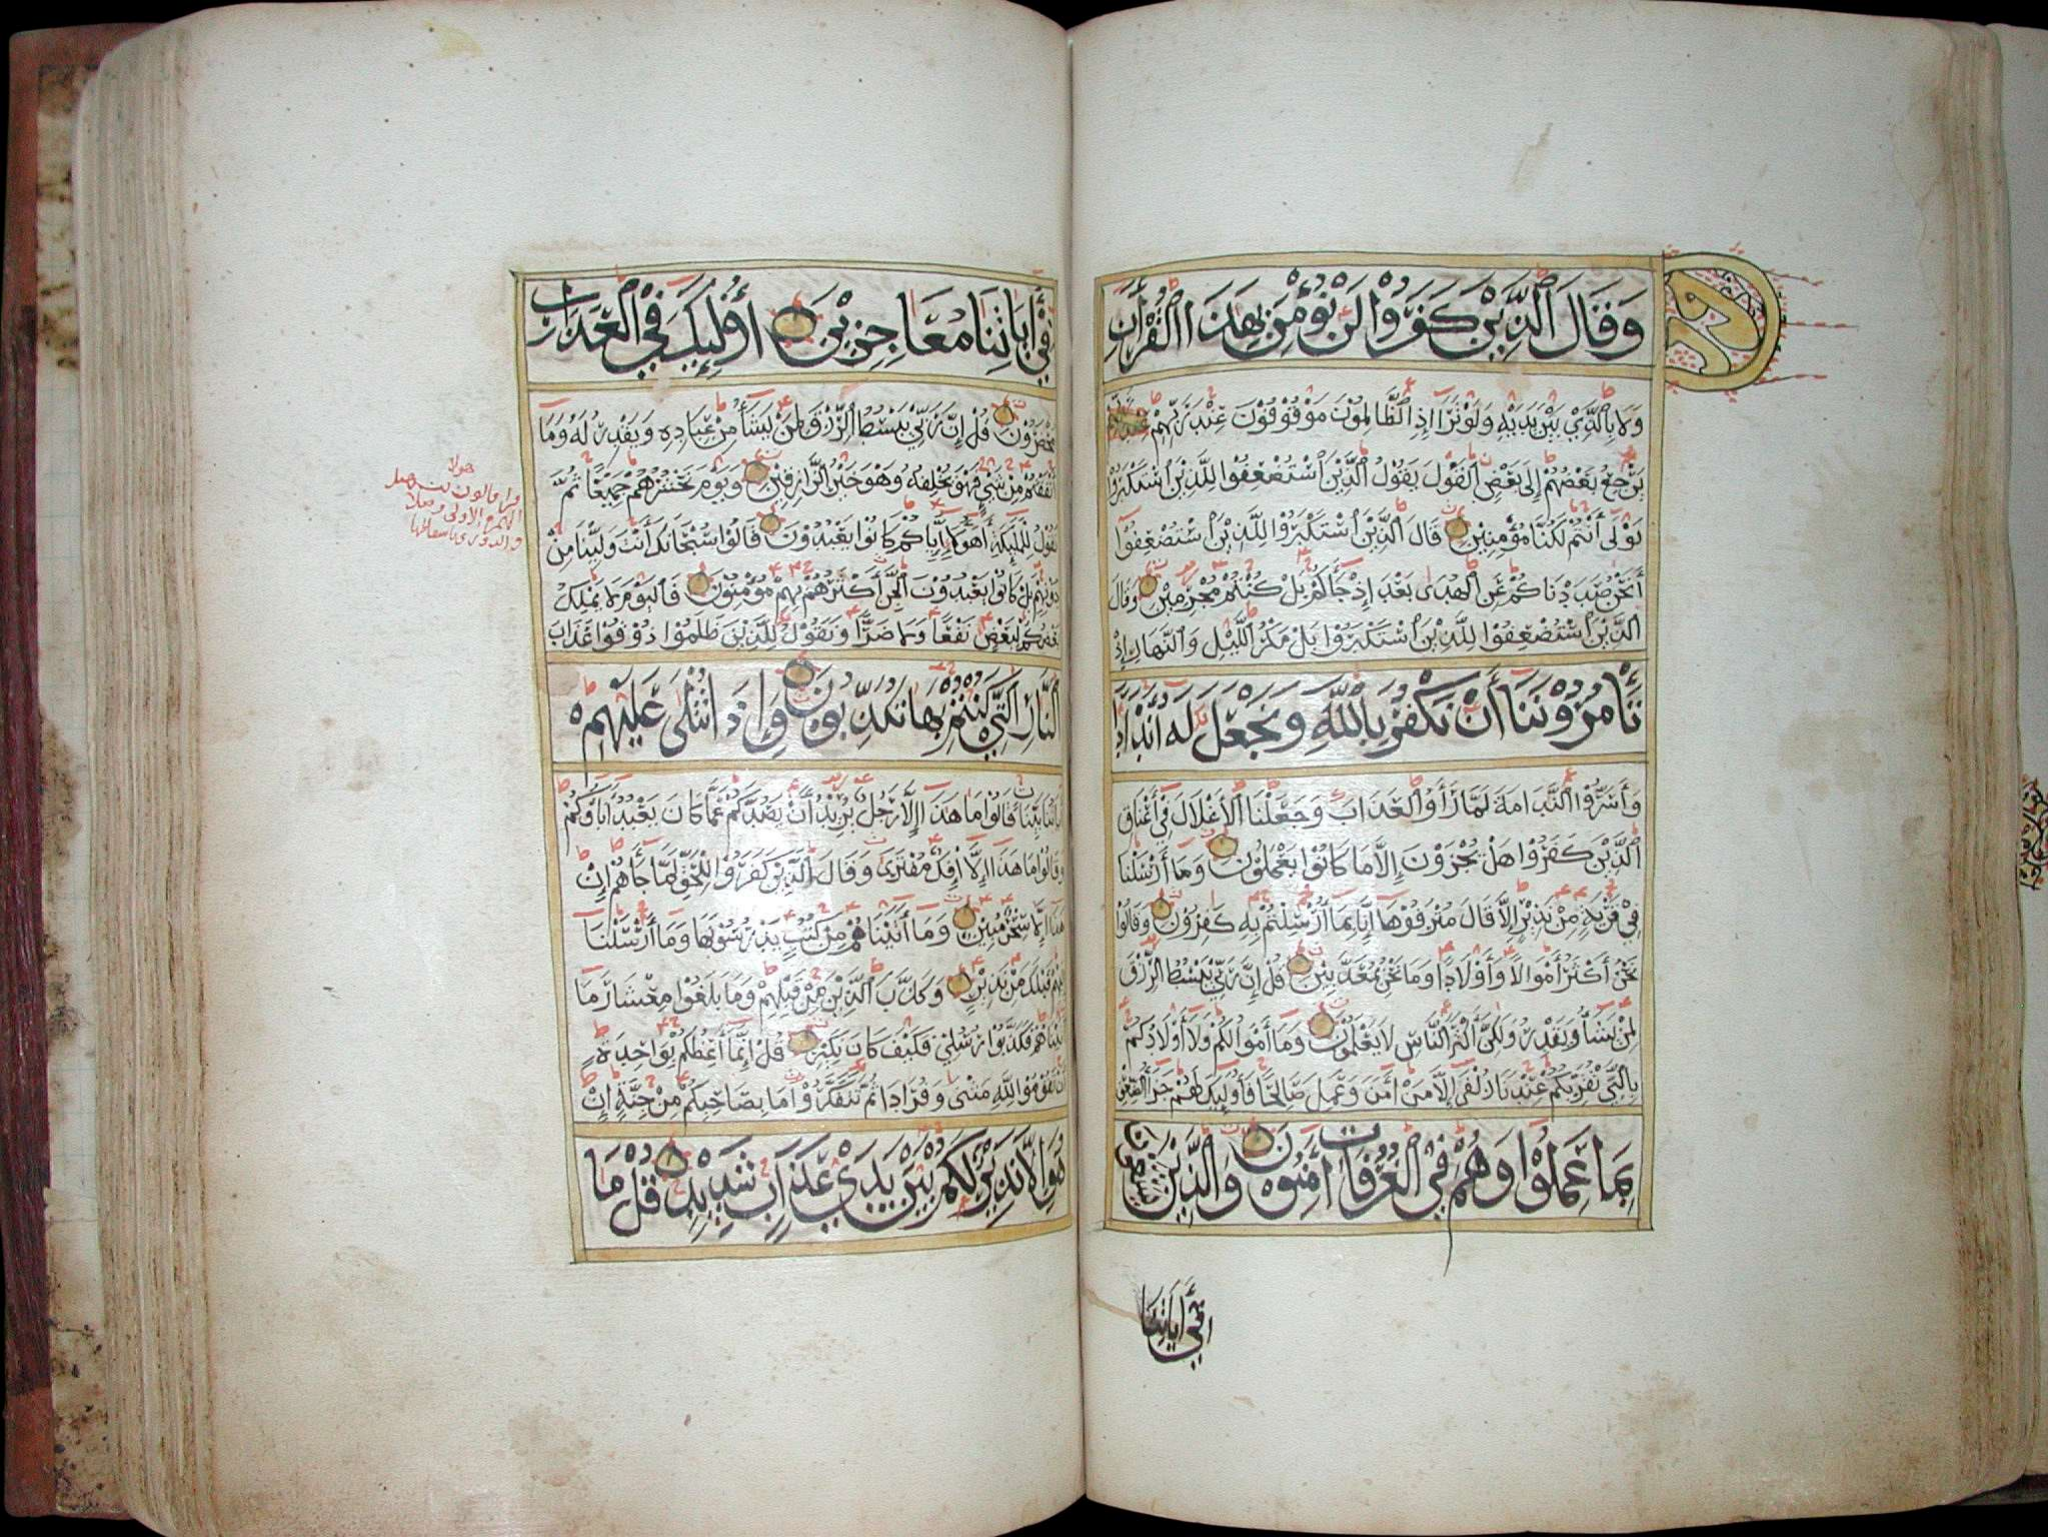 وَقَالَ ٱلَّذِيْنَ كَفَرُوْا لَنْ نُؤْمِنَ بِهَذَا ٱلْقُرْأَنِ
وَلَا بِٱلَّذِيْ بَيْنَ يَدَيْهِ وَلَوْ تَرَٓا إِذِ ٱلظَّالِمُوْنَ مَوْقُوْفُوْنَ عِنْدَ رَبِّهِمْ
يَرْجِعُ بَعْضُهُمْ إِلَى بَعْضِ ٱلْقَوْلَ يَقُوْلُ ٱلَّذِيْنَ ٱسْتُضْعِفُوْا لِلَّذِيْنَ ٱسْتَكْبَرُوْا
لَوْلَٓى أَنْتُمْ لَكُنَّا مُؤْمِنِيْنَ قَالَ ٱلَّذِيْنَ ٱسْتَكْبَرُوْا لِلَّذِيْنَ ٱسْتُضْعِفُوْٓا
أَنَحْنُ صَدَدْنَاكُمْ عَنِ ٱلْهُدَى بَعْدَ إِذْ جَآكُمْ بَلْ كُنْتُمْ مُجْرِمِيْنَ وَقَالَ
ٱلَّذِيْنَ ٱسْتُضْعِفُوْا لِلَّذِيْنَ ٱسْتَكْبَرُوْا بَلْ مَكْرُ ٱللَّيْلِ وَٱلنَّهَارِ إِذْ
تَأْمُرُوْنَنَآ أَنْ نَكْفُرَ بِٱللَّهِ وَنَجْعَلَ لَهُ أَنْدَادًا
وَأَسَرُّوْا ٱلنَّدَامَةَ لَمَّا رَأَوُا ٱلْعَذَابَ وَجَعَلْنَا ٱلْأَغْلَالَ فِيْ أَعْنَاقِ
ٱلَّذِيْنَ كَفَرُوْا هَلْ يُجْزَوْنَ إِلَّا مَا كَانُوْا يَعْمَلُوْنَ وَمَآ أَرْسَلْنَا
فِيْ قَرْيَةٍ مِنْ نَذِيْرٍ إِلَّا قَالَ مُتْرَفُوْهَآ إِنَّا بِمَآ أُرْسِلْتُمْ بِهِ كَفِرُوْنَ وَقَالُوْا
نَحْنُ أَكْثَرُ أَمْوَالًا وَأَوْلَادًا وَمَا نَحْنُ بِمُعَذَّبِيْنَ قُلْ إِنَّ رَبِّيْ يَبْسُطُ ٱلرِّزْقَ
لِمَنْ يَشَآُ وَيَقْدِرُ وَلَكِنَّ أَكْثَرَ ٱلنَّاسِ لَا يَعْلَمُوْنَ وَمَآ أَمْوَالُكُمْ وَلَآ أَوْلَادُكُمْ
بِٱلَّتِيْ تُقَرِّبُكُمْ عِنْدَنَا زُلْفَى إِلَّا مَنْ أَمَنَ وَعَمِلَ صَالِحًا فَأُوْلَٓئِكَ لَهُمْ جَزَآُ ٱلضِّعْفِ
بِمَا عَمِلُوْا وَهُمْ فِي ٱلْغُرُفَاتِ أَمِنُوْنَ وَٱلَّذِيْنَ يَسْعَوْنَ
فِيْٓ أَيَاتِنَا
فِيْٓ أَيَاتِنَا مُعَاجِزِيْنَ أُوْلَٓئِكَ فِي ٱلْعَذَابِ
مُحْضَرُوْنَ قُلْ إِنَّ رَبِّيْ يَبْسُطُ ٱلرِّزْقَ لِمَنْ يَشَآُ مِنْ عِبَادِهِ وَيَقْدِرُ لَهُ وَمَآ
أَنْفَقْتُمْ مِنْ شَيْءٍ فَهْوَ يُخْلِفُهُ وَهْوَ خَيْرُ ٱلرَّازِقِيْنَ وَيَوْمَ نَحْشُرُهُمْ جَمِيْعًا ثُمَّ
نَقُوْلُ لِلْمَلَٓئِكَةِ أَهَٓؤُلَآ إِيَّاكُمْ كَانُوْا يَعْبُدُوْنَ قَالُوْا سُبْحَانَكَ أَنْتَ وَلِيُّنَا مِنْ
دُوْنِهِمْ بَلْ كَانُوْا يَعْبُدُوْنَ ٱلْجِنَّ أَكْثَرُهُمْ بِهِمْ مُؤْمِنُوْنَ فَٱلْيَوْمَ لَا يَمْلِكُ
بَعْضُكُمْ لِبَعْضٍ نَفْعًا وَلَا ضَرًّا وَنَقُوْلُ لِلَّذِيْنَ ظَلَمُوْا ذُوْقُوْا عَذَابَ
ٱلنَّارِ ٱلَّتِيْ كُنْتُمْ بِهَا تُكَذِّبُوْنَ وَإِذَا تُتْلَى عَلَيْهِمْ
أَيَاتُنَا بَيِّنَاتٍ قَالُوْا مَا هَذَآ إِلَّا رَجُلٌ يُرِيْدُ أَنْ يَصُدَّكُمْ عَمَّا كَانَ يَعْبُدُ أَبَآؤُكُمْ
وَقَالُوْا مَا هَذَآ إِلَّآ إِفْكٌ مُفْتَرًى وَقَالَ ٱلَّذِيْنَ كَفَرُوْا لِلْحَقِّ لَمَّا جَآهُمْ إِنْ
هَذَآ إِلَّا سِحْرٌ مُبِيْنٌ وَمَآ أَتَيْنَاهُمْ مِنْ كُتُبٍ يَدْرُسُوْنَهَا وَمَآ أَرْسَلْنَآ
إِلَيْهِمْ قَبْلَكَ مِنْ نَذِيْرٍ وَكَذَّبَ ٱلَّذِيْنَ مِنْ قَبْلِهِمْ وَمَا بَلَغُوْا مِعْشَارَ مَآ
أَتَيْنَاهُمْ فَكَذَّبُوْا رُسُلِيْ فَكَيْفَ كَانَ نَكِيْرِ قُلْ إِنَّمَآ أَعِظُكُمْ بِوَاحِدَةٍ
أَنْ تَقُوْمُوْا لِلَّهِ مَثْنَى وَفُرَادَى ثُمَّ تَتَفَكَّرُوْا مَا بِصَاحِبِكُمْ مِنْ جِنَّةٍ إِنْ
هُوَ إِلَّا نَذِيْرٌ لَكُمْ بَيْنَ يَدَيْ عَذَابٍ شَدِيْدٍ قُلْ مَا